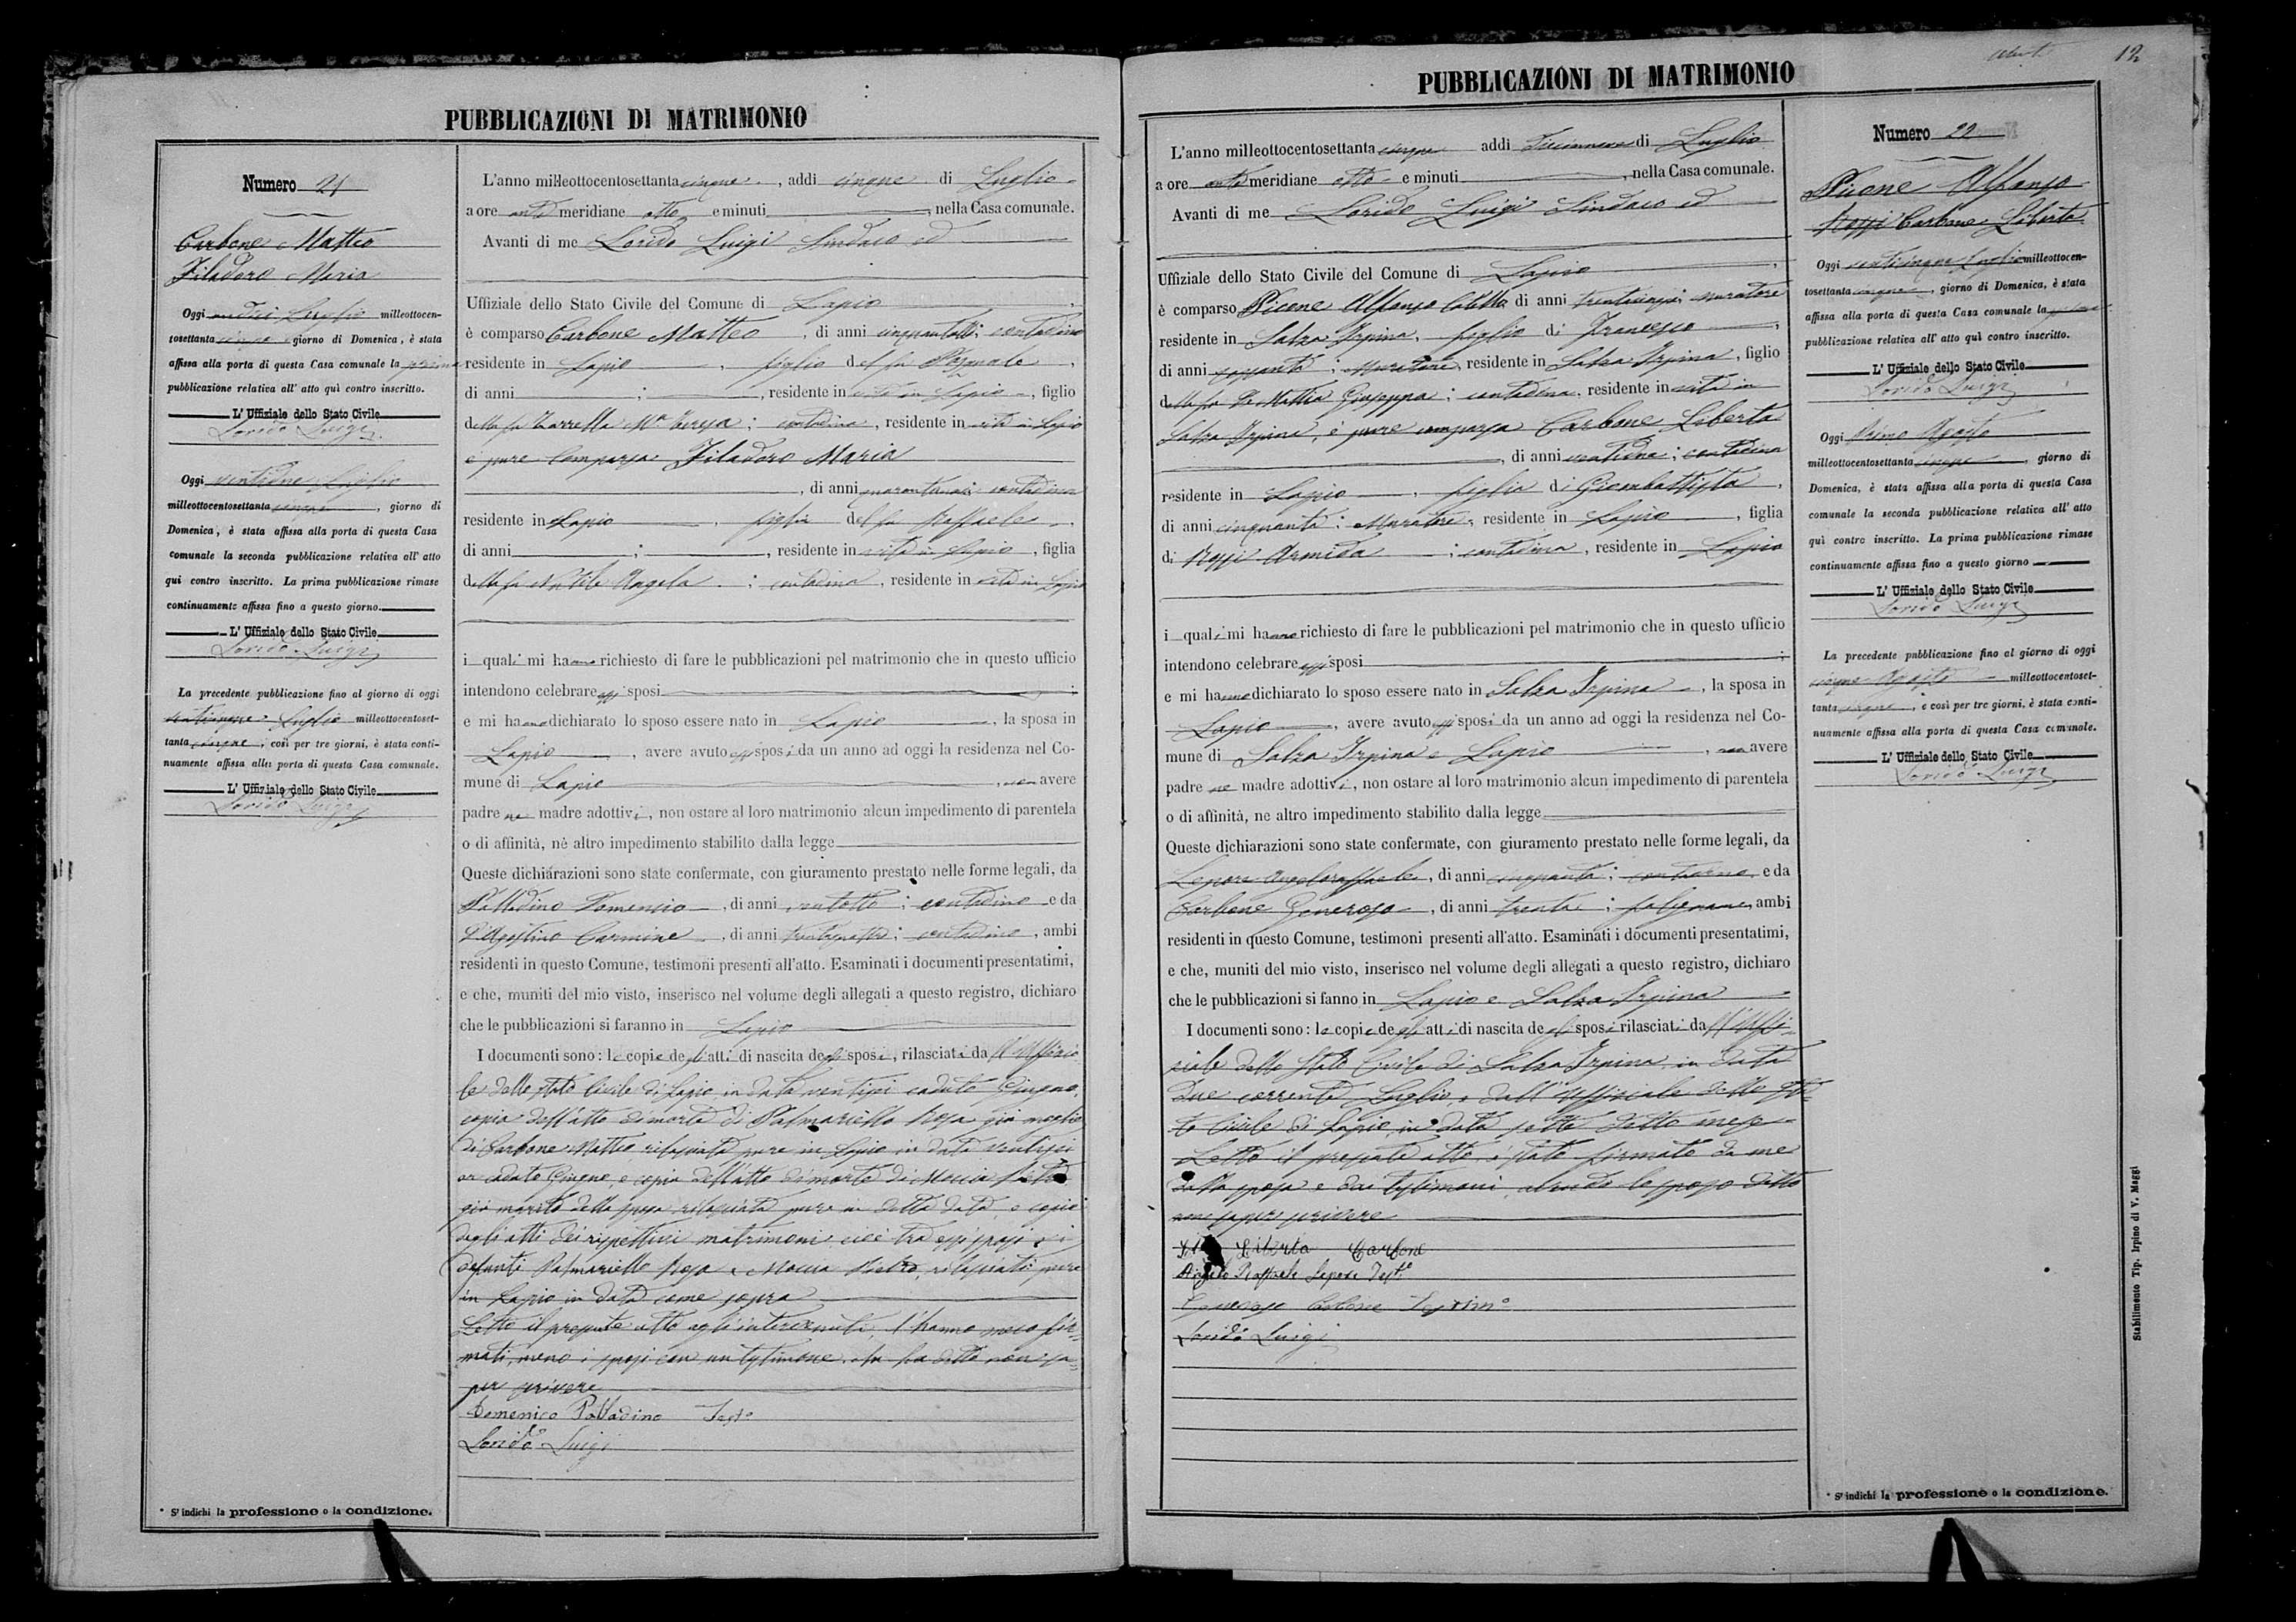 PUBBLICAZIONI DI MATRIMONIO
Numero 21
Carbone Matteo
Filadoro Maria
Oggi undici Luglio milleottocen-
tosettanta cinque giorno di Domenica, è stata
affissa alla porta di questa Casa comunale la prima
pubblicazione relativa all' atto quì contro inscritto.
L' Uffiziale dello Stato Civile
Lorido Luigi
Oggi Luglio
milleottocentosettanta cinque, giorno di
Domenica, è stata affissa alla porta di questa Casa
comunale la seconda pubblicazione relativa all' atto
quì contro inscritto. La prima pubblicazione rimase
continuamente affissa fino a questo giorno.
L' Uffiziale dello Stato Civile
Lorido Luigi
La precedente pubblicazione fino al giorno di oggi
Luglio milleottocentoset-
tanta cinque, così per tre giorni, è stata conti-
nuamente affissa alla porta di questa Casa comunale.
L' Uffiziale dello Stato Civile
Lorido Luigi
* Si indichi la professione o la condizione.
L'anno milleottocentosettanta cinque, addì cinque di Luglio
a ore anti meridiane otto e minuti , nella Casa comunale.
Avanti di me Lorido Luigi Sindaco ed
Uffiziale dello Stato Civile del Comune di Lapio
è comparso Carbone Matteo, di anni cinquantotto; contadino
residente in Lapio, figlio del fu Pasquale,
di anni ; , residente in vita in Lapio, figlio
della fu Zarrella Ma Teresa; contadina, residente in vita in Lapio
è pure comparsa Filadoro Maria
, di anni ; contadina
residente in Lapio, figlia del fu Raffaele,
di anni ; , residente in vita in Lapio, figlia
della fu Angela; contadina, residente in vita in Lapio
i quali mi hanno richiesto di fare le pubblicazioni pel matrimonio che in questo ufficio
intendono celebrare essi sposi ;
e mi hanno dichiarato lo sposo essere nato in Lapio, la sposa in
Lapio, avere avuto essi sposi da un anno ad oggi la residenza nel Co-
mune di Lapio, non avere
padre ne madre adottivi, non ostare al loro matrimonio alcun impedimento di parentela
o di affinità, nè altro impedimento stabilito dalla legge
Queste dichiarazioni sono state confermate, con giuramento prestato nelle forme legali, da
Palladino Domenico, di anni ventotto; contadino e da
D'Agostino Carmine, di anni trentaquattro; contadino, ambi
residenti in questo Comune, testimoni presenti all'atto. Esaminati i documenti presentatimi,
e che, muniti del mio visto, inserisco nel volume degli allegati a questo registro, dichiaro
che le pubblicazioni si faranno in Lapio
I documenti sono: le copie degli atti di nascita degli sposi, rilasciati dall'Uffizia
le dello Stato Civile di Lapio in data ventisei caduto Giugno,
copia dell'atto di morte di Palmariello Rosa già moglie
di Carbone Matteo rilasciata pure in Lapio in data ventisei
or caduto Giugno, e copia dell'atto di morte di Moccia Pietro
già marito della sposa rilasciata pure in detta data e copie
degli atti dei rispettivi matrimoni cioè tra essi sposi ed i
defunti Palmariello Rosa e Moccia Pietro, rilasciati pure
in Lapio in data come sopra
Letto il presente atto agli intervenuti, l'hanno meco fir-
mati, meno i sposi con un testimone per sa detto non sa-
per scrivere
Domenico Palladino Testo
Lorido Luigi
12
PUBBLICAZIONI DI MATRIMONIO
L'anno milleottocentosettanta cinque addì Diciannove di Luglio
a ore anti meridiane otto e minuti , nella Casa comunale.
Avanti di me Lorido Luigi Sindaco ed
Uffiziale dello Stato Civile del Comune di Lapio,
è comparso Picone Alfonso di anni ; muratore
residente in Salza Irpina, figlio di Francesco,
di anni sessanta; Muratore, residente in Salza Irpina, figlio
della fu De Mattia Giuseppa; contadina, residente in vita in
Salza Irpina, è pure comparsa Carbone Liberta
, di anni ventidue; contadina
residente in Lapio, figlia di Giambattista,
di anni cinquanta; Muratore, residente in Lapio, figlia
di Rossi Armida; contadina, residente in Lapio
i quali mi hanno richiesto di fare le pubblicazioni pel matrimonio che in questo ufficio
intendono celebrare essi sposi ;
e mi hanno dichiarato lo sposo essere nato in Salza Irpina, la sposa in
Lapio, avere avuto essi sposi da un anno ad oggi la residenza nel Co-
mune di Salza Irpina e Lapio, non avere
padre ne madre adottivi, non ostare al loro matrimonio alcun impedimento di parentela
o di affinità, ne altro impedimento stabilito dalla legge
Queste dichiarazioni sono state confermate, con giuramento prestato nelle forme legali, da
Lepore Angeloraffaele, di anni cinquanta; contadino e da
Carbone Generoso, di anni trenta; falegname, ambi
residenti in questo Comune, testimoni presenti all'atto. Esaminati i documenti presentatimi,
e che, muniti del mio visto, inserisco nel volume degli allegati a questo registro, dichiaro
che le pubblicazioni si fanno in Lapio e Salza Irpina
I documenti sono: le copie degli atti di nascita degli sposi rilasciati dall'Uffi-
ziale dello Stato Civile di Salza Irpina in data
due corrente Luglio, e dall'Uffiziale dello Sta-
to Civile di Lapio, in data sette detto mese
Letto il presente atto è stato firmato da me
dalla sposa e dai testimoni, avendo lo sposo detto
non saper scrivere
Liberta Carbone
Angelo Raffaele Lepore Testo
Generoso Carbone Testimo
Lorido Luigi
Numero 22
Picone Alfonso
Rossi Carbone Liberta
Oggi venticinque Luglio milleottocen-
tosettanta cinque, giorno di Domenica, è stata
affissa alla porta di questa Casa comunale la prima
pubblicazione relativa all' atto quì contro inscritto.
L' Uffiziale dello Stato Civile
Lorido Luigi
Oggi Primo Agosto
milleottocentosettanta cinque, giorno di
Domenica, è stata affissa alla porta di questa Casa
comunale la seconda pubblicazione relativa all' atto
quì contro inscritto. La prima pubblicazione rimase
continuamente affissa fino a questo giorno
L' Uffiziale dello Stato Civile
Lorido Luigi
La precedente pubblicazione fino al giorno di oggi
cinque Agosto milleottocentoset-
tanta cinque, e così per tre giorni, è stata conti-
nuamente affissa alla porta di questa Casa comunale.
L' Uffiziale dello Stato Civile
Lorido Luigi
* Si indichi la professione o la condizione.
Stabilimento Tip. Irpino di V. Maggi